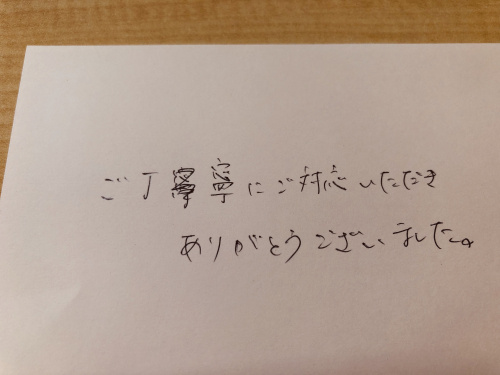 ご丁寧にご対応いただき
ありがとうございました。